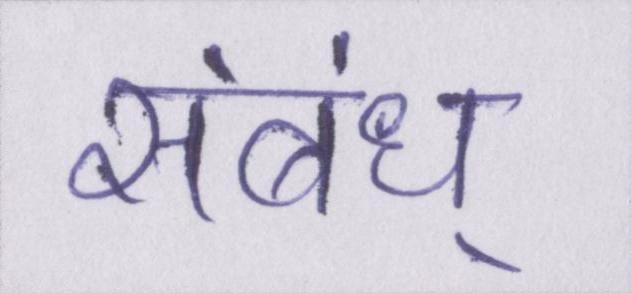 संबंध्